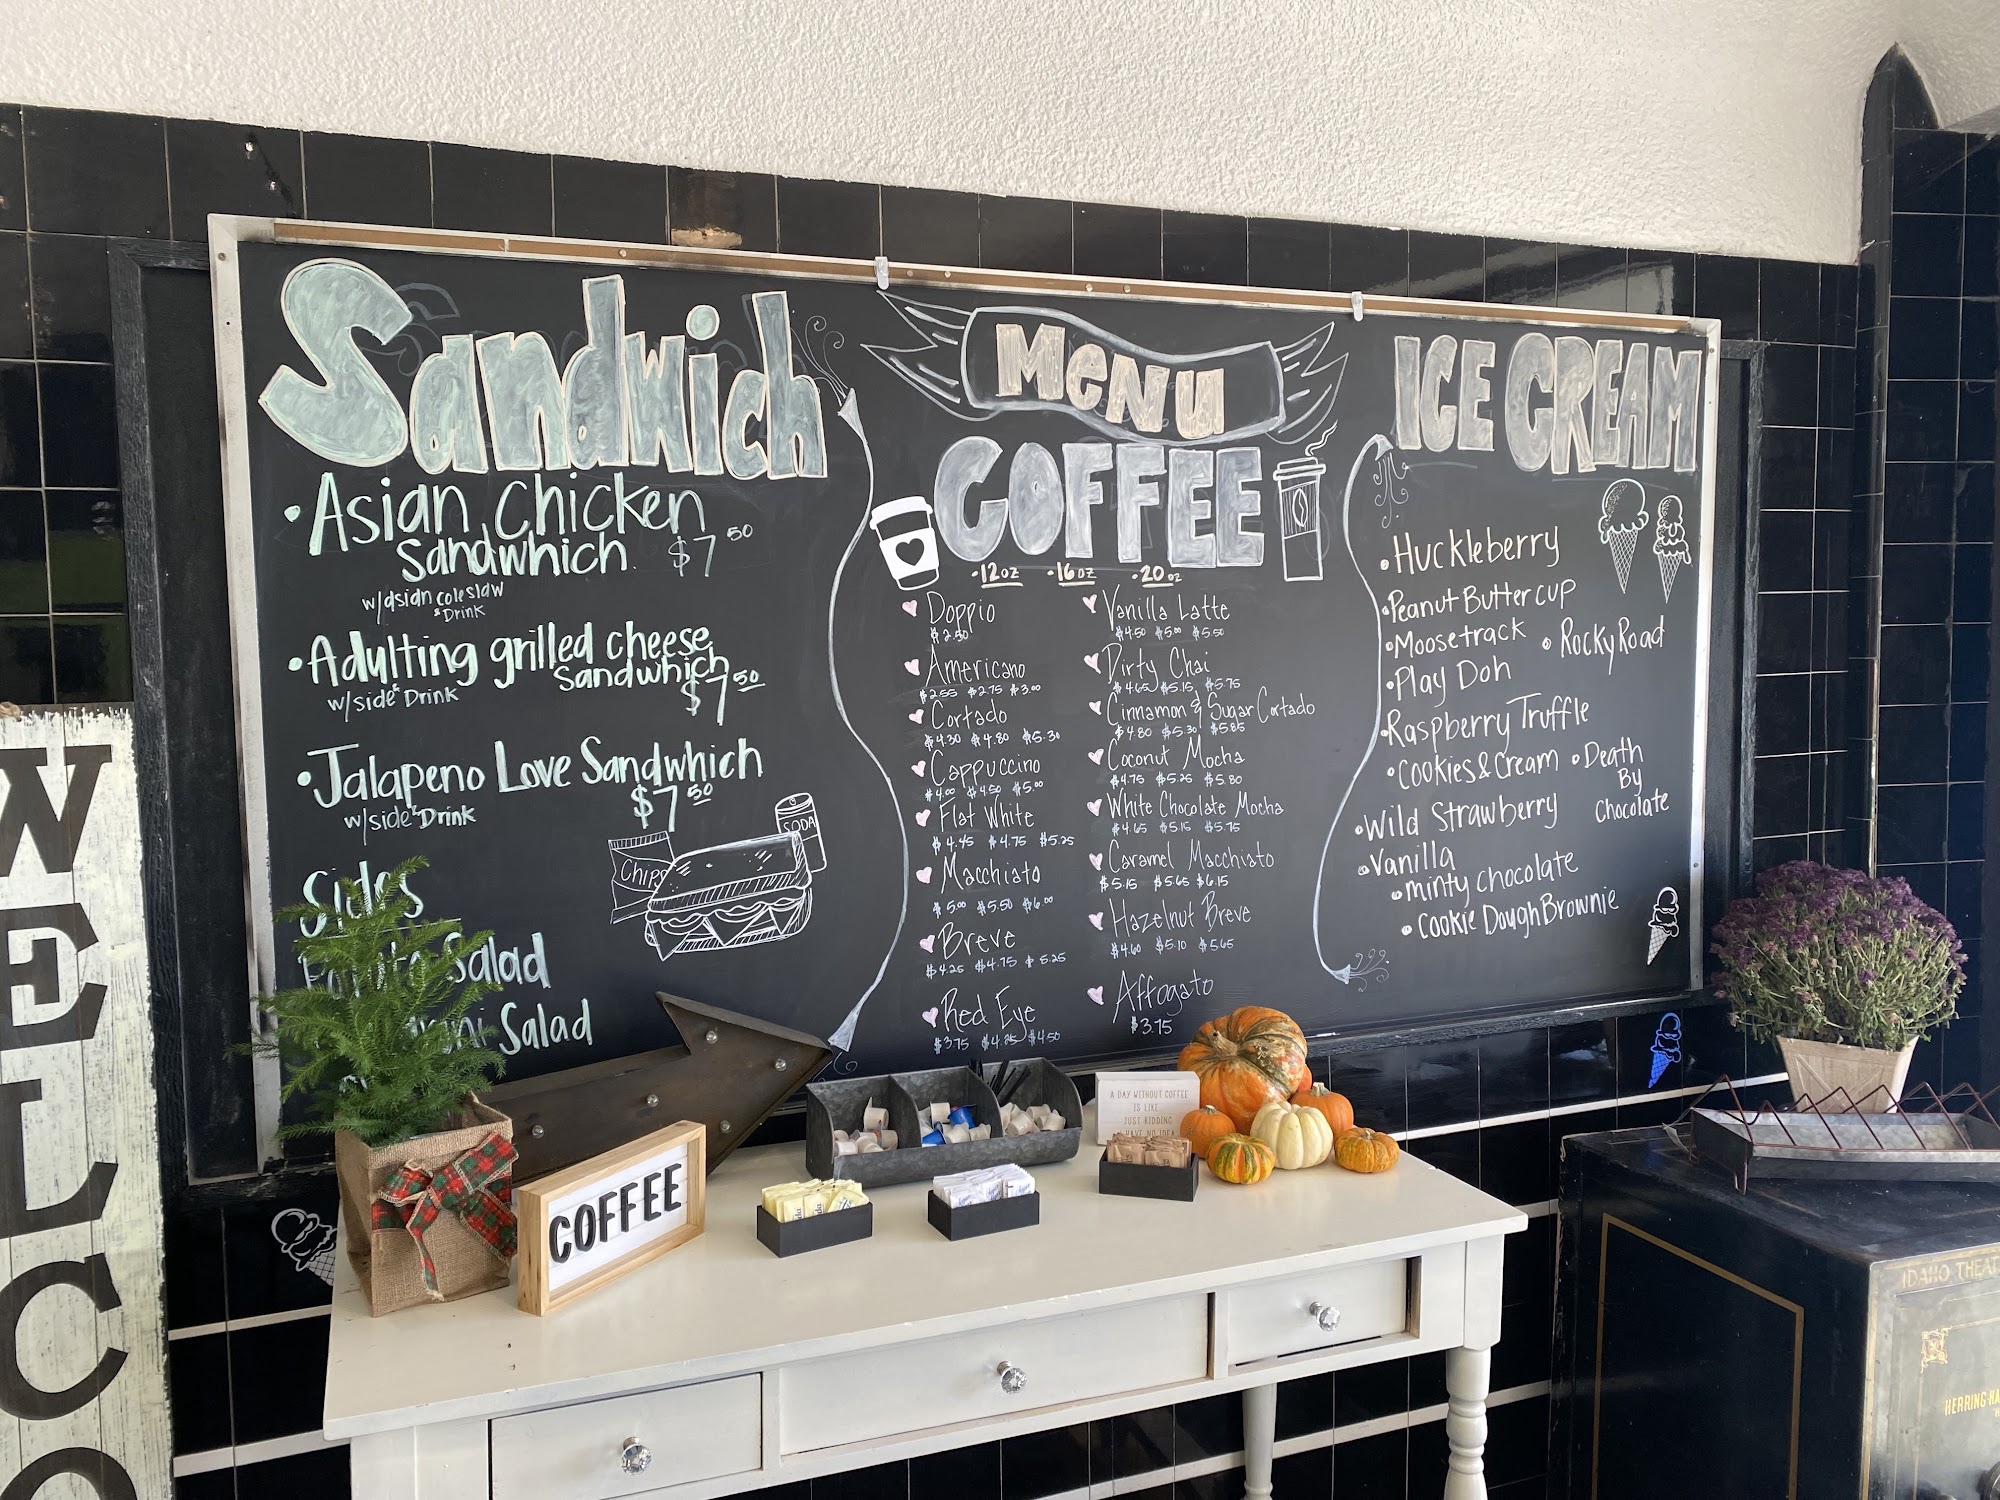 Sandwich
• Asian Chicken
Sandwhich $7 50
w/asian coleslaw
& Drink
• Adulting grilled cheese
Sandwhich
w/side & Drink $7 50
• Jalapeno Love Sandwhich
w/side & Drink $7 50
Sides
Salad
Salad
Chips
SODA
MeNu
COFFEE
• 12oz • 16oz • 20oz
Doppio
$2.50
Americano
$2.55 $2.75 $3.00
Cortado
$4.30 $4.80 $5.30
Cappuccino
$4.00 $4.50 $5.00
Flat White
$4.45 $4.75 $5.25
Macchiato
$5.00 $5.50 $6.00
Breve
$4.25 $4.75 $5.25
Red Eye
$3.75 $4.25 $4.50
Vanilla Latte
$4.50 $5.00 $5.50
Dirty Chai
$4.65 $5.15 $5.75
Cinnamon & Sugar Cortado
$4.80 $5.30 $5.85
Coconut Mocha
$4.75 $5.25 $5.80
White Chocolate Mocha
$4.65 $5.15 $5.75
Caramel Macchiato
$5.15 $5.65 $6.15
Hazelnut Breve
$4.60 $5.10 $5.65
Affogato
$3.75
ICE CREAM
• Huckleberry
• Peanut Butter cup
• Moosetrack
• Rocky Road
• Play Doh
• Raspberry Truffle
• Cookies & Cream
• Death
By
Chocolate
• Wild Strawberry
• Vanilla
• minty chocolate
• Cookie Dough Brownie
WELCO
COFFEE
A DAY WITHOUT COFFEE
IS LIKE
JUST KIDDING
HAVE NO IDEA
IDAHO THEAT
HERRING-HA